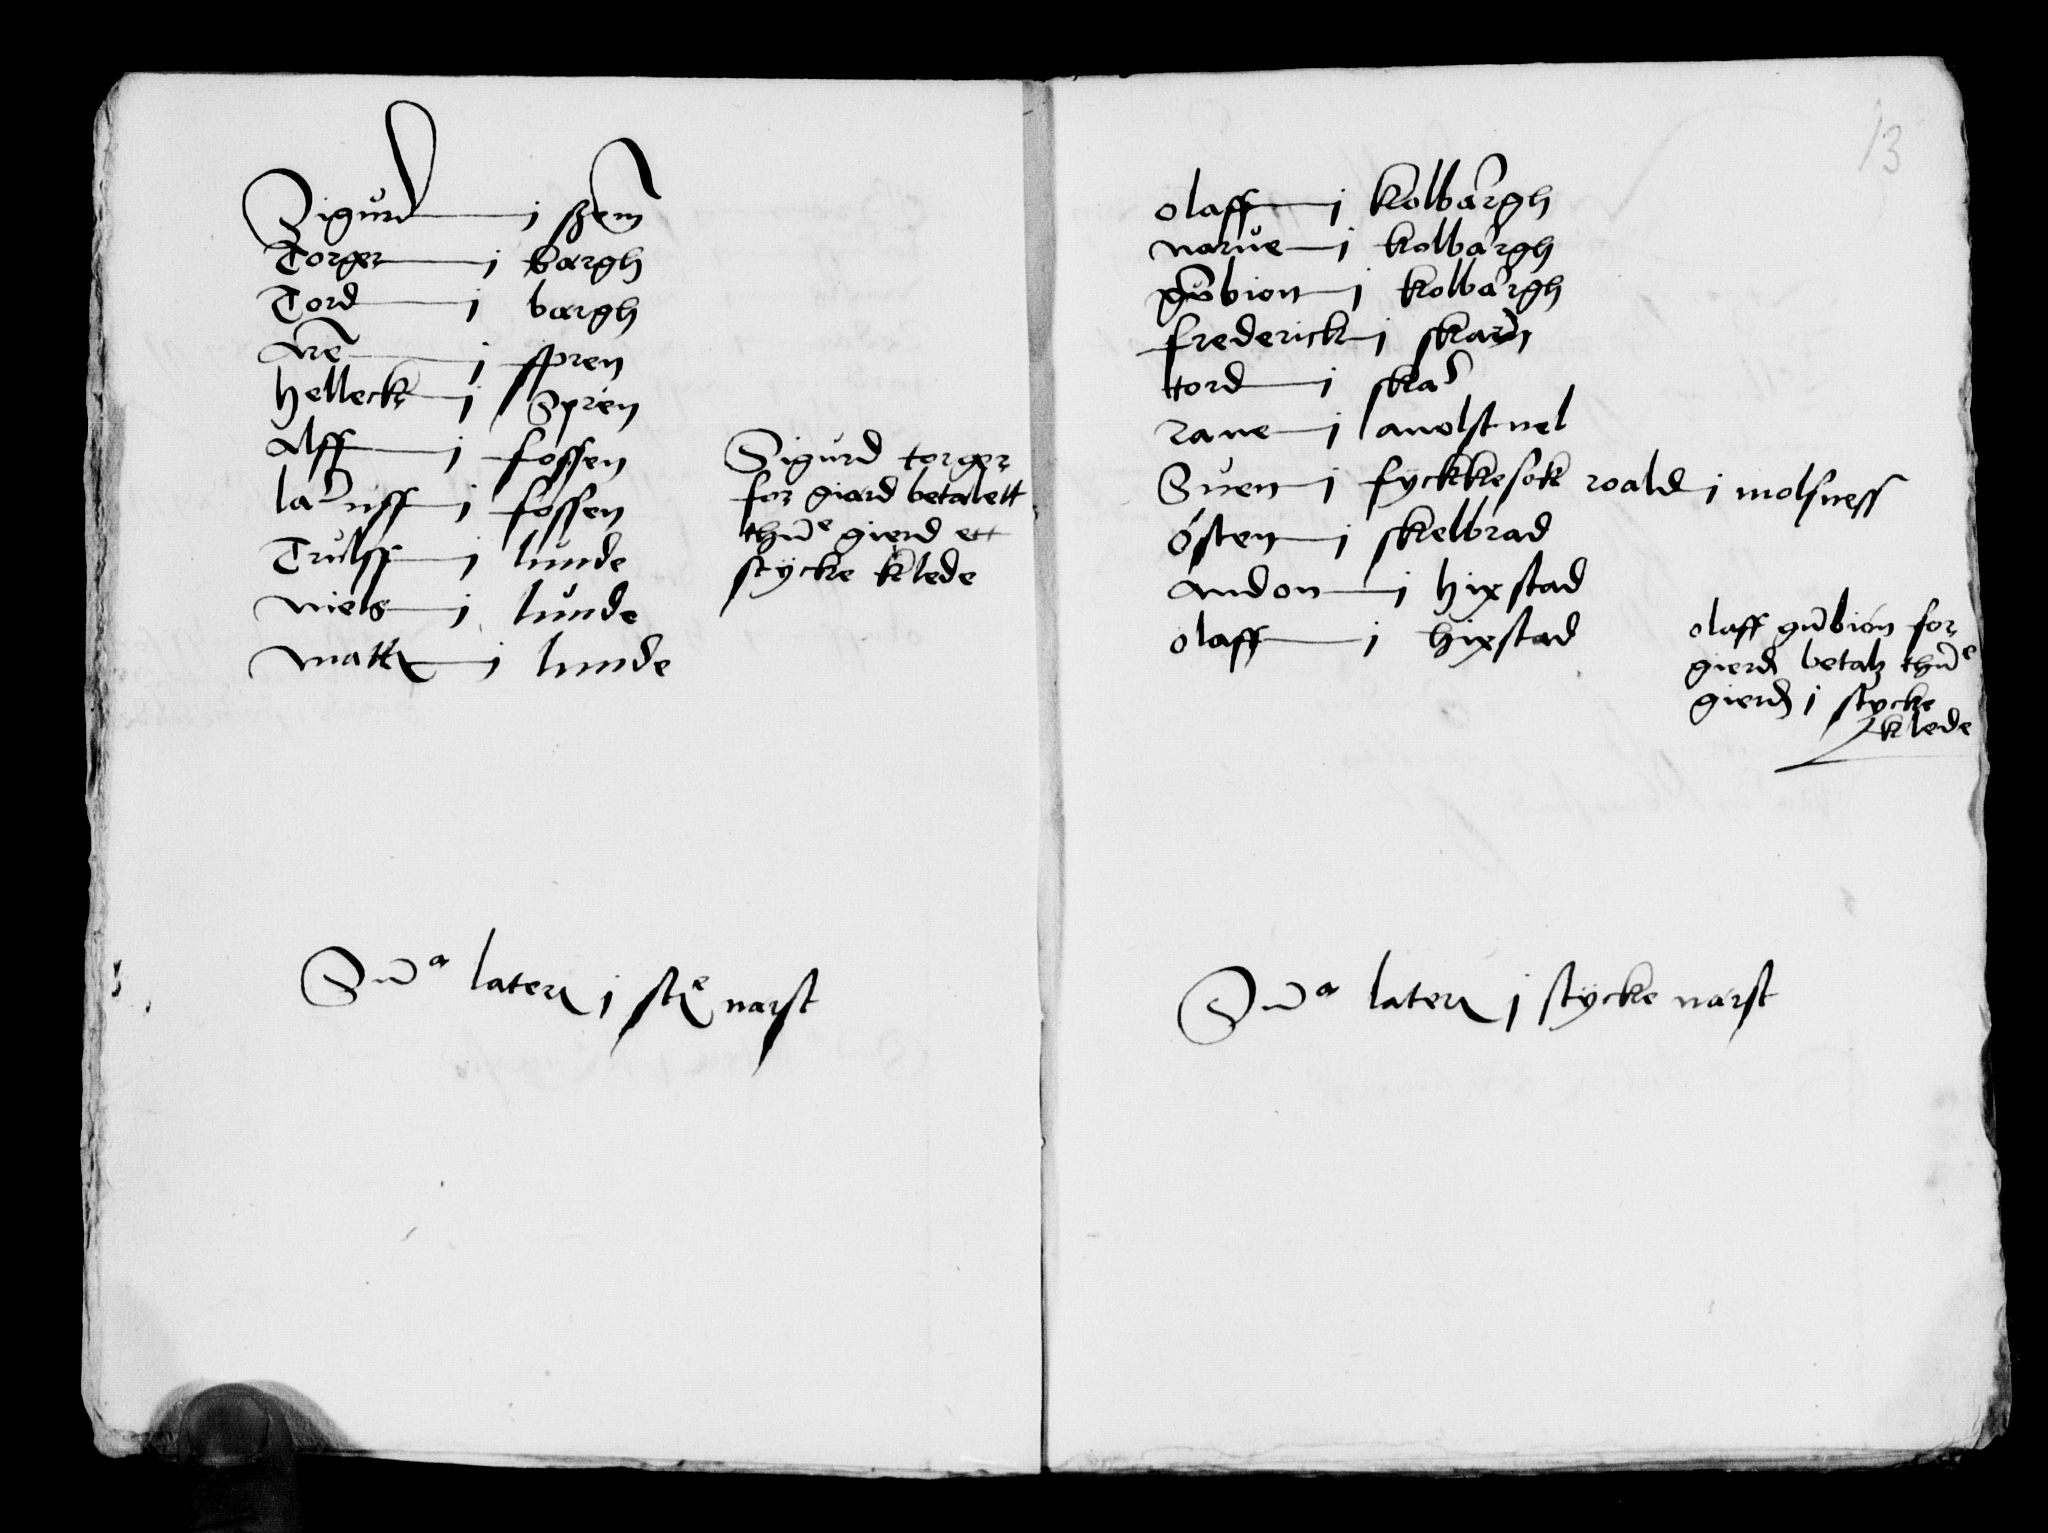 Sigurd i szem
Torger i bargh
Tord i bargh
Are i spren
Helleck i Spren
Alff i fossen
laurss i fossen
Trulss i lunde
niels i lunde
matt i lunde
Sigurd torger
for giard betalett
thue gierd ett
stycke klede
Sua later i ste narst
13
olaff i kolbargh
narue i kolbargh
gubion i kolbargh
frederick i skarn
tord i skar
rane i anolstuel
Suen i fyckkesok roald i molsness
østen i skelbrad
Andon i hixstad
olaff i hixstad
olaff gubion for
gierd betalz thue
gierd i stycke
klede
Sua later i stycke narst